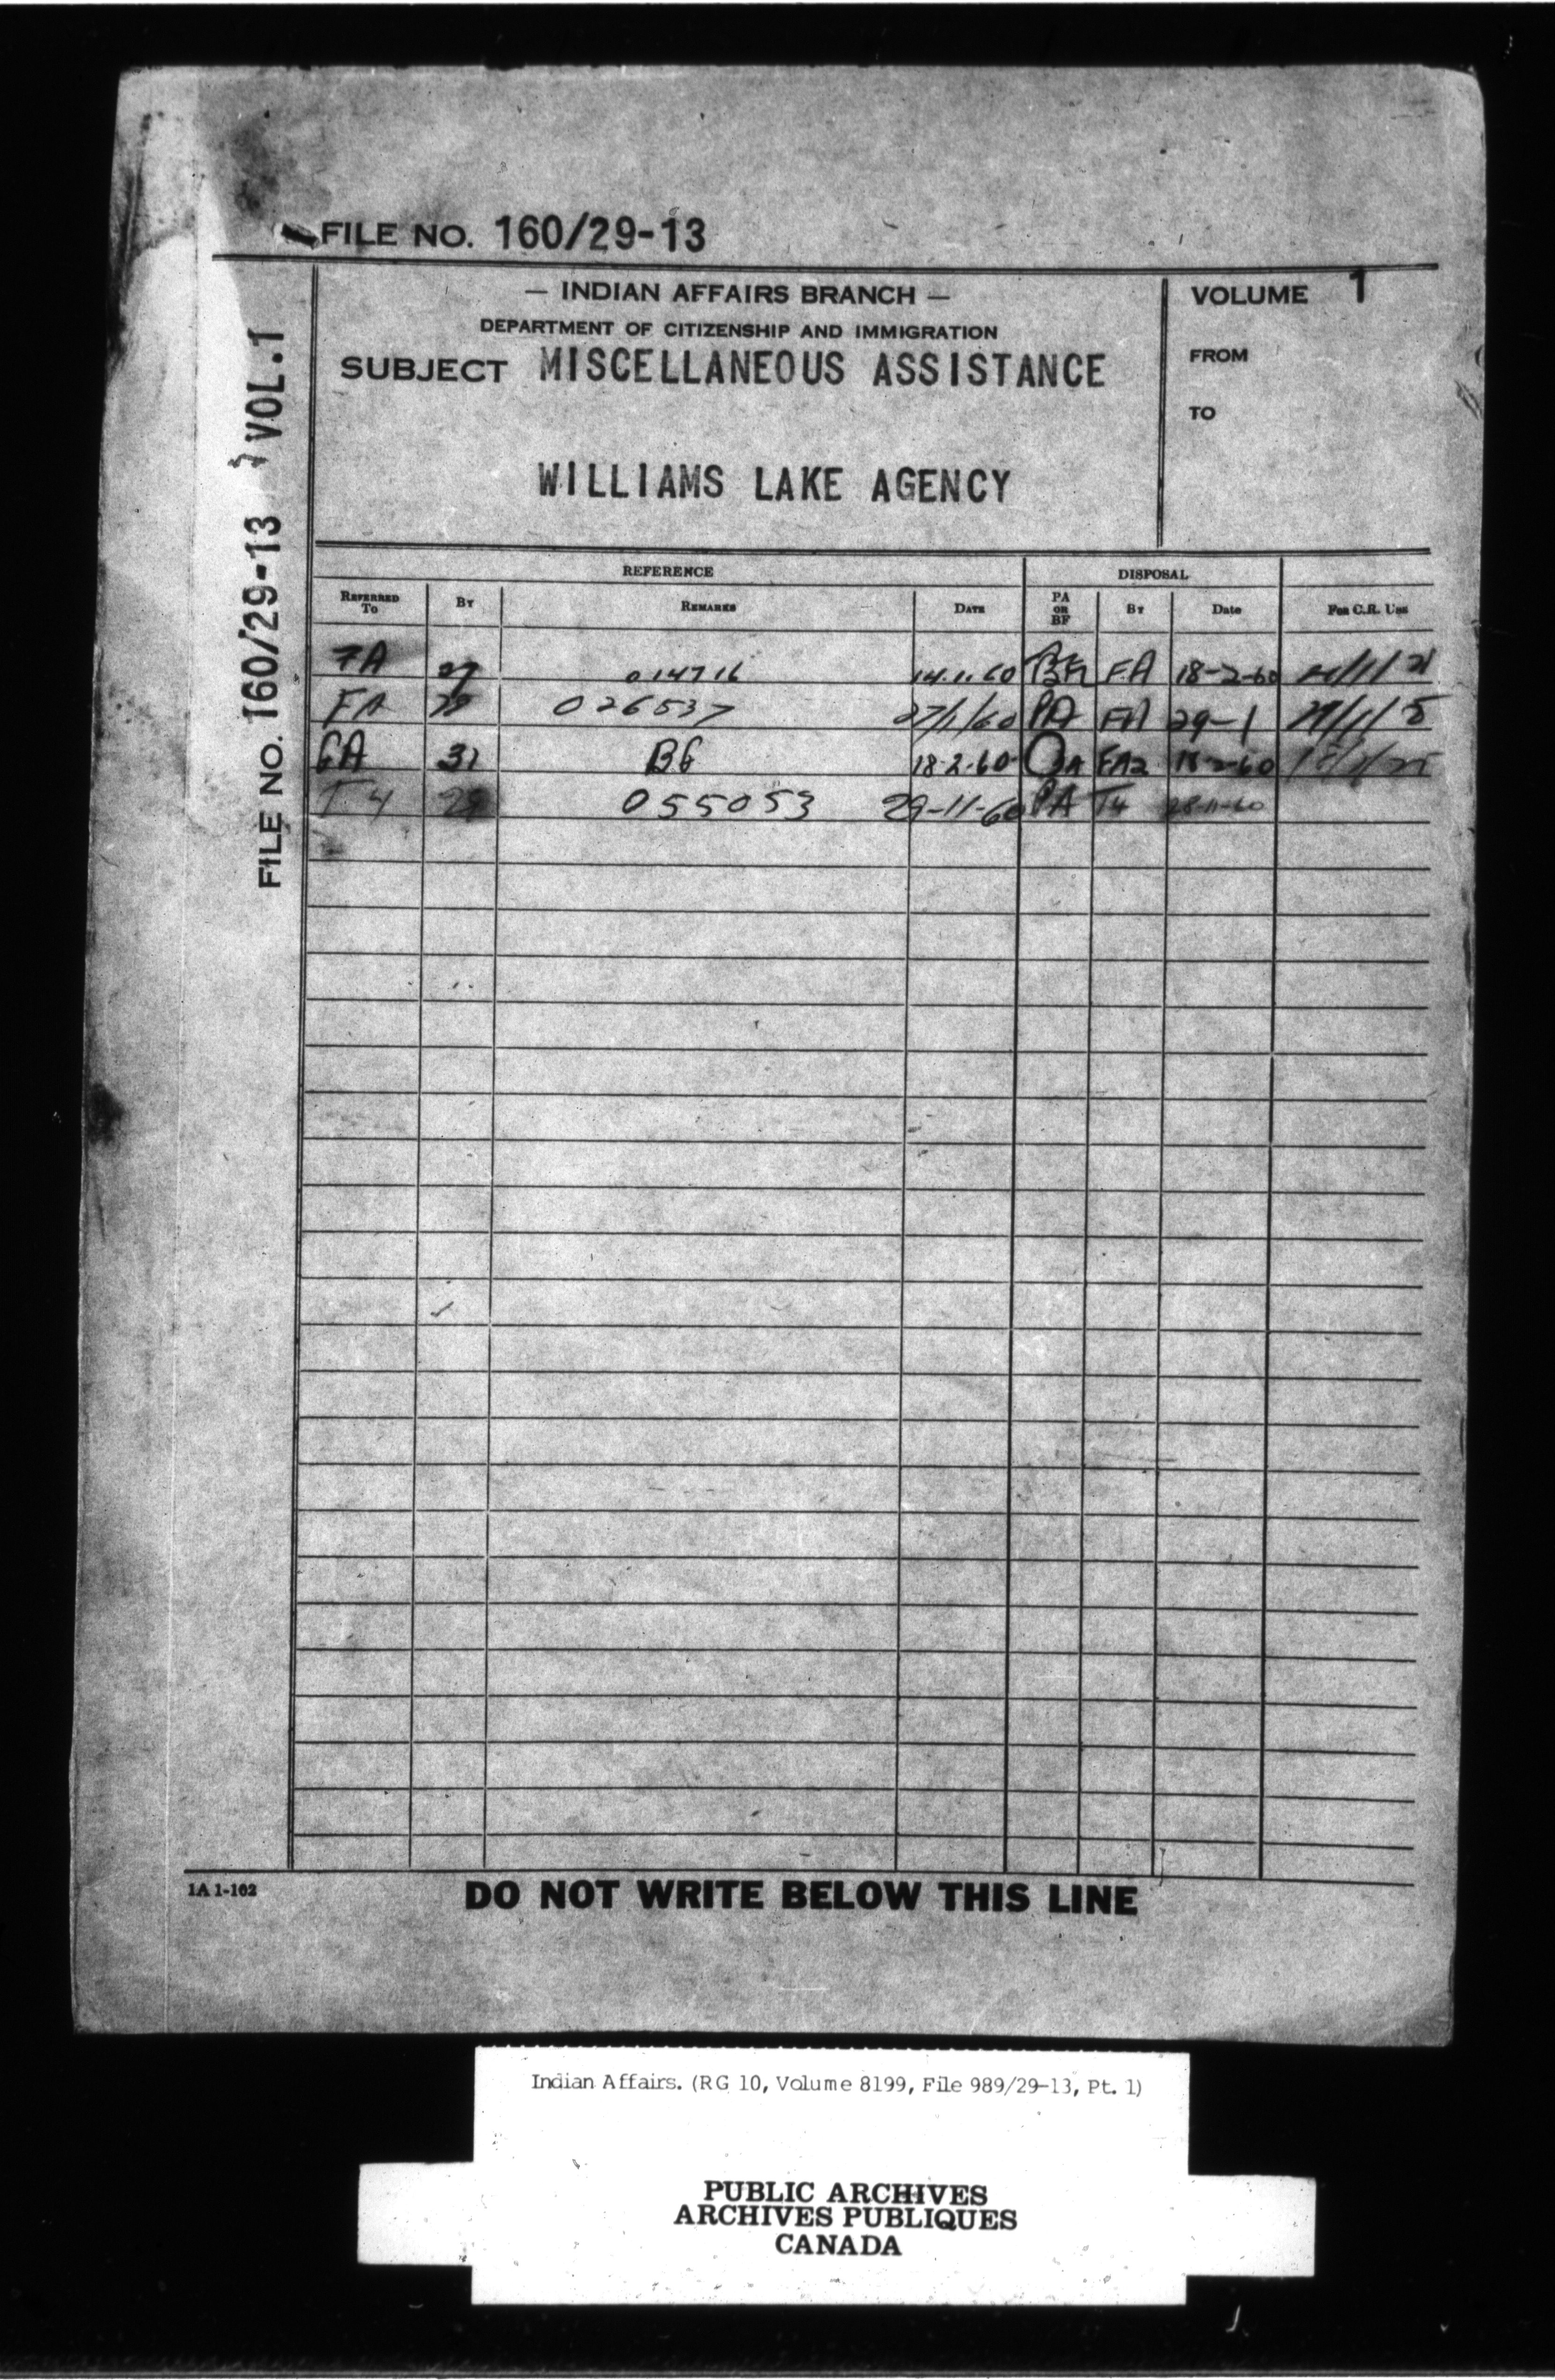 FILE NO. 160/29-13
— INDIAN AFFAIRS BRANCH —
DEPARTMENT OF CITIZENSHIP AND IMMIGRATION
SUBJECT MISCELLANEOUS ASSISTANCE
WILLIAMS LAKE AGENCY
VOLUME 1
FROM
TO
FILE NO. 160/29-13 VOL.1
REFERENCE DISPOSAL
REFERRED TO BY REMARKS DATE PA OR BF BY Date For C.R. Use
FA 27 014716 14.1.60 FA 18-2-60
FA 026537 27/1/60 PA FA 29-1
31 BF 18-2-60 FA2 18-2-60
T4 29 055053 29-11-60 PA T4 28-11-60
IA 1-102
DO NOT WRITE BELOW THIS LINE
Indian Affairs. (RG 10, Volume 8199, File 989/29-13, Pt. 1)
PUBLIC ARCHIVES
ARCHIVES PUBLIQUES
CANADA